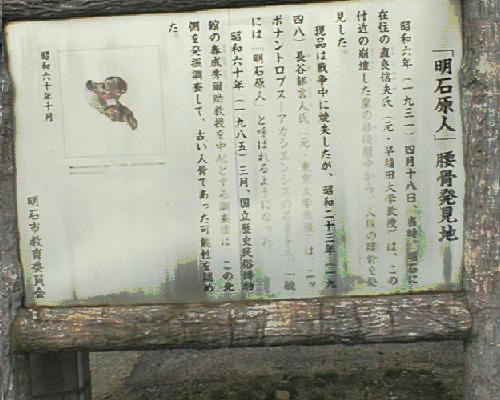 「明石原人」腰骨発見地
昭和六年（一九三一）四月十八日、当時、明石に
在住の直良信夫氏（元・早稲田大学教授）は、この
付近の崩壊した崖の
見した。
現品は戦争中に焼失したが、昭和二十三年（一九
四八）長谷部言人氏（元・東京大学教授）は
ナントロプス＝アカシエンシスの名を 一般
には「明石原人」と呼ばれるようになった。
昭和六十年（一九八五）三月、国立歴史民俗博物
館の春成秀爾助教授を中心とする調査団は、この北
側を発掘調査して、古い人骨であった可能性を強め
た。
昭和六十年十月
明石市教育委員会